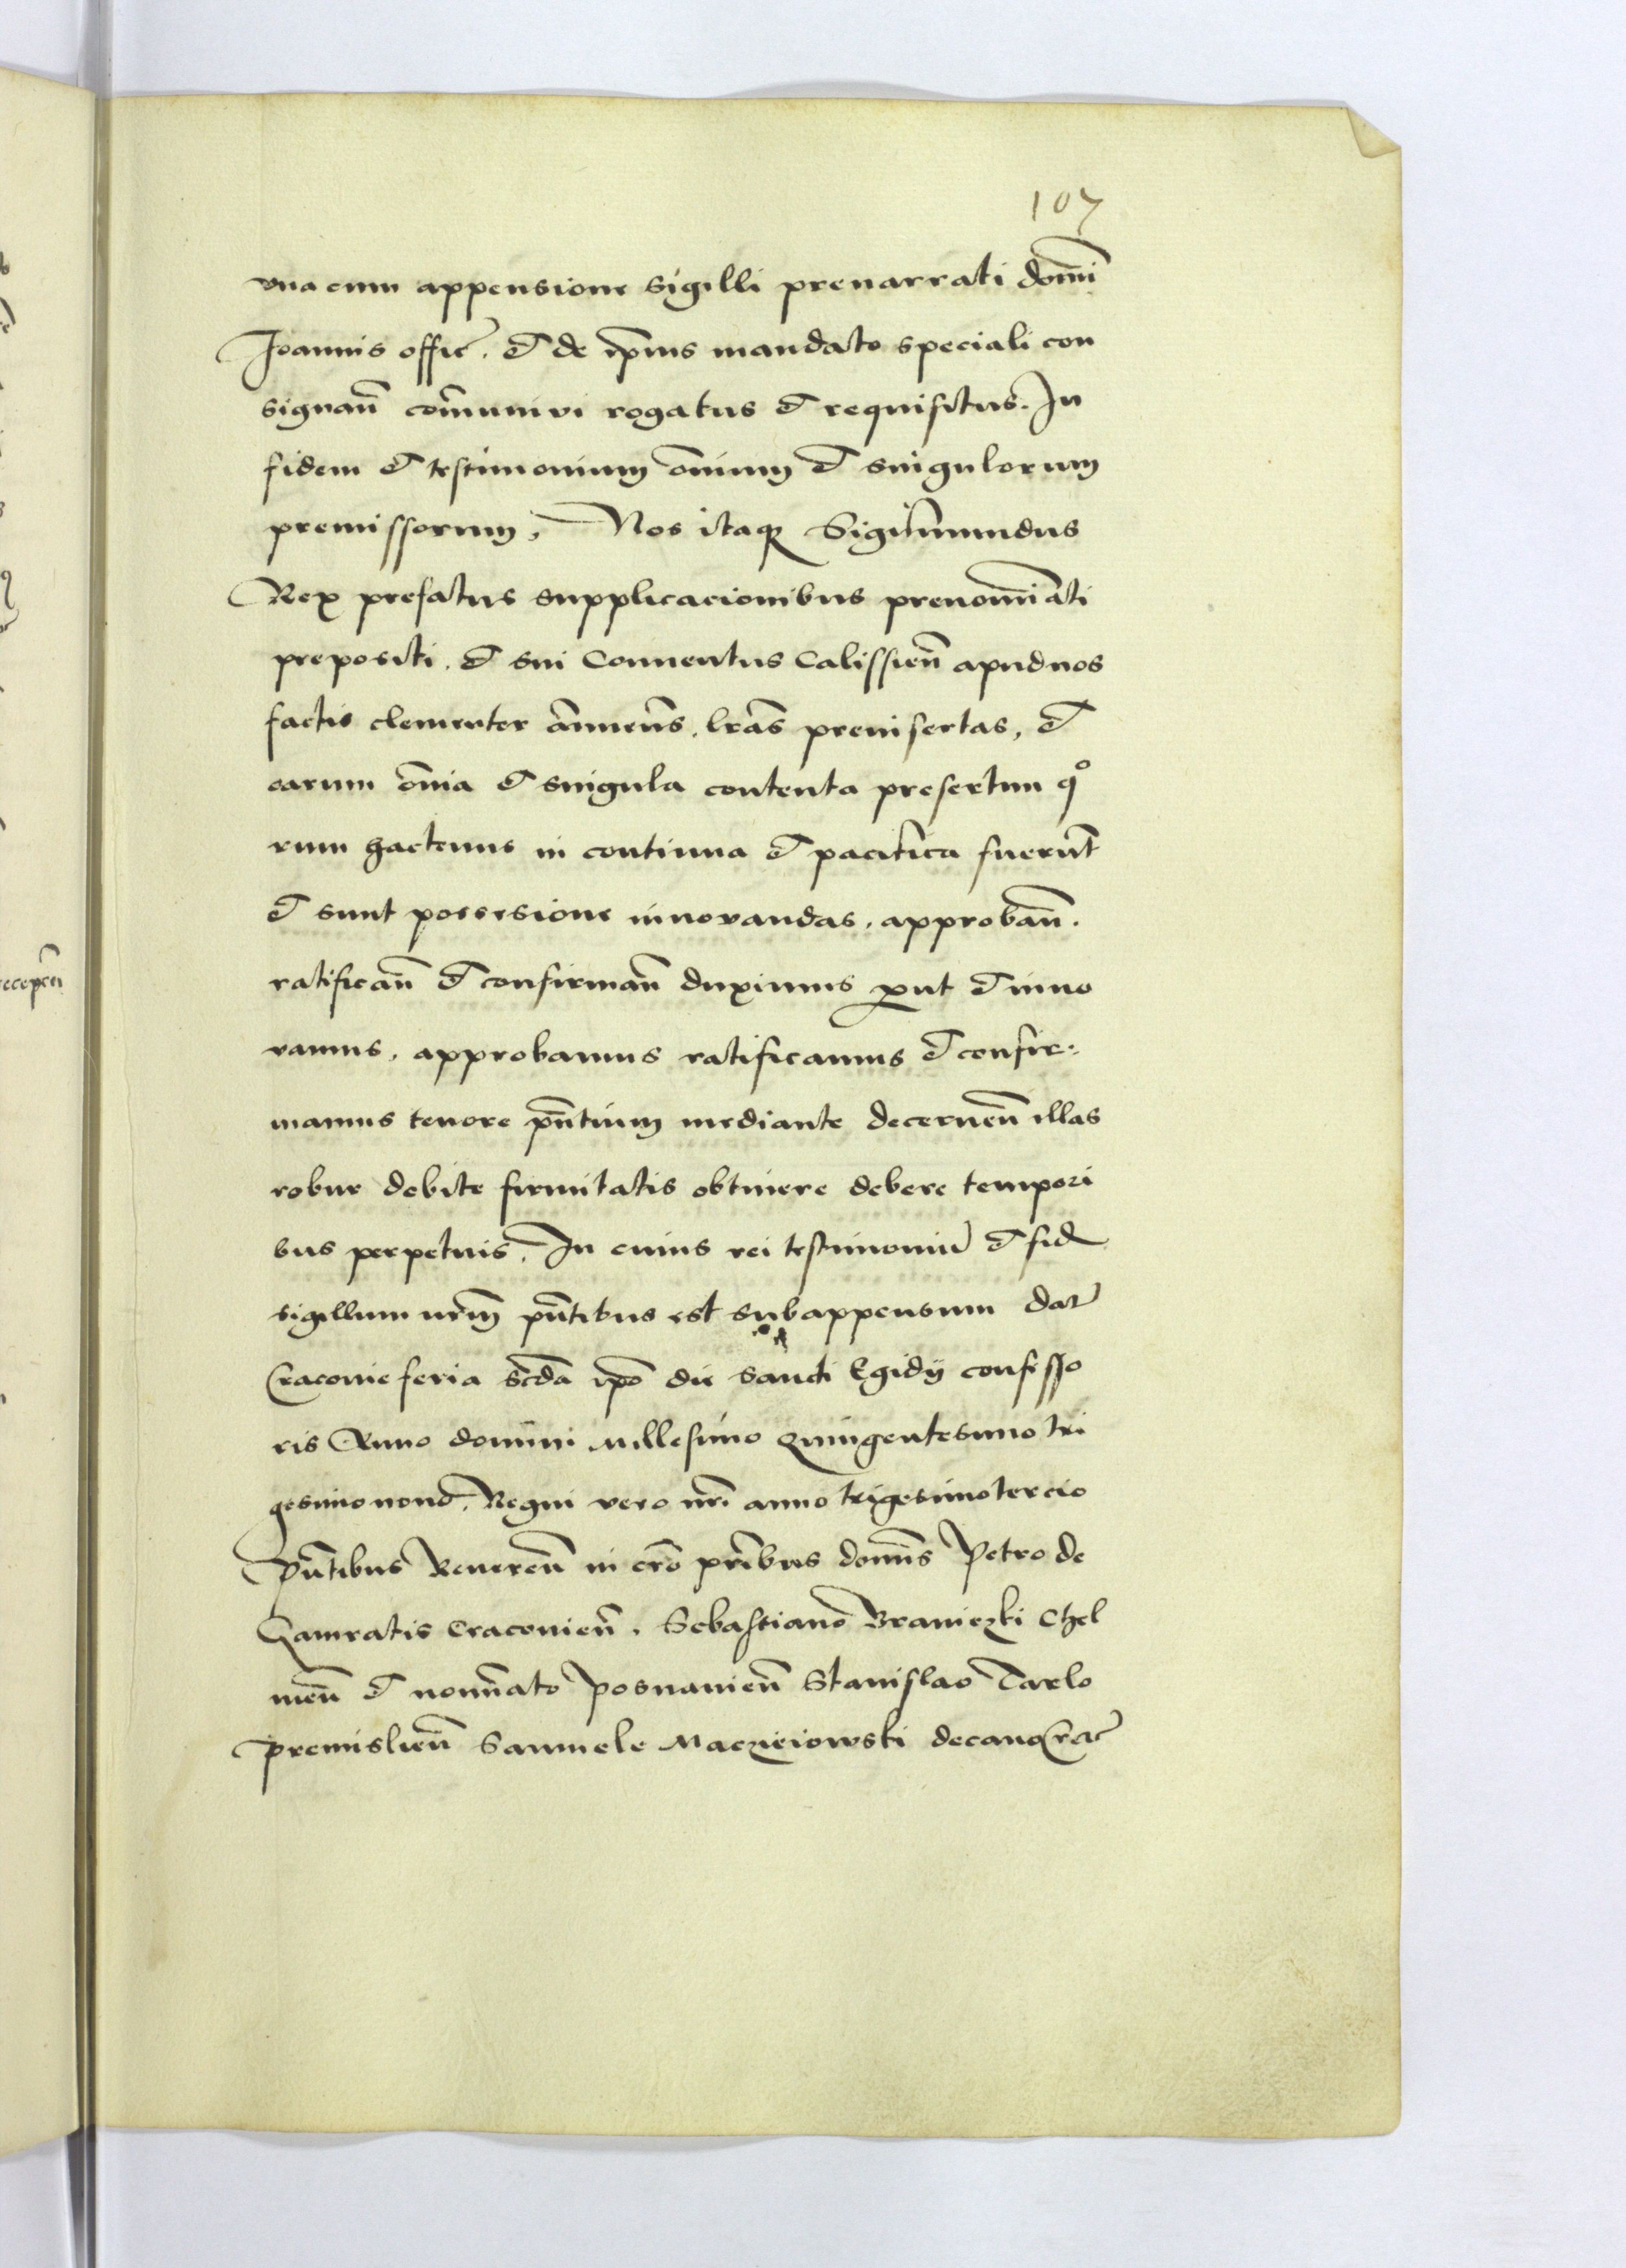 107
vna cum appensione sigilli prenarrati dom̄i
Joannis offic̄. et de ip̄ius mandato speciali con
signan̄ com̄uniui rogatus et requisitus. In
fidem et testimonium om̄ium et singulorum
premissorum. Nos itaqꝫ Sigismundus
Rex prefatus supplicacionibus prenomi͞ati
prepositi. et sui Conuentus Calissien̄ apud nos
factis clementer an̄nuen̄s. lr̄as preinsertas, et
earum om̄ia et singula contenta presertim qͦ
rum hactenus in continua et pacifica fuerūt
et sunt possesione innouandas. approban̄.
ratifican̄ et confirman̄ duximus ꝓut et inno
vamus. approbamus ratificamus et confir-
mamus tenore pn̄tium mediante decernen̄ illas
robur debite firmitatis obtinere debere tempori
bus perpetuis. In cuius rei testimoniū et fid
sigillum nr̄m pn̄tibus est subappensum dat̄
Cracouie feria sc̄da ip̄o die sancti Egidij confesso
ris Anno domini Millesimo Quingentesimo tri
gesimo nono. Regni vero nr̄i anno trigesimo tercio
Pn̄tibus Reueren̄ in cr̄o pr̄ibus domn̄s Petro de
Gamratis Cracouien̄. Sebastiano Braniczki Chel
men̄ et nomn̄ato Posnanien̄ Stanislao Tarlo
Premislien̄ Samuele Maczieiowski decano Crac̄
ecepcōi